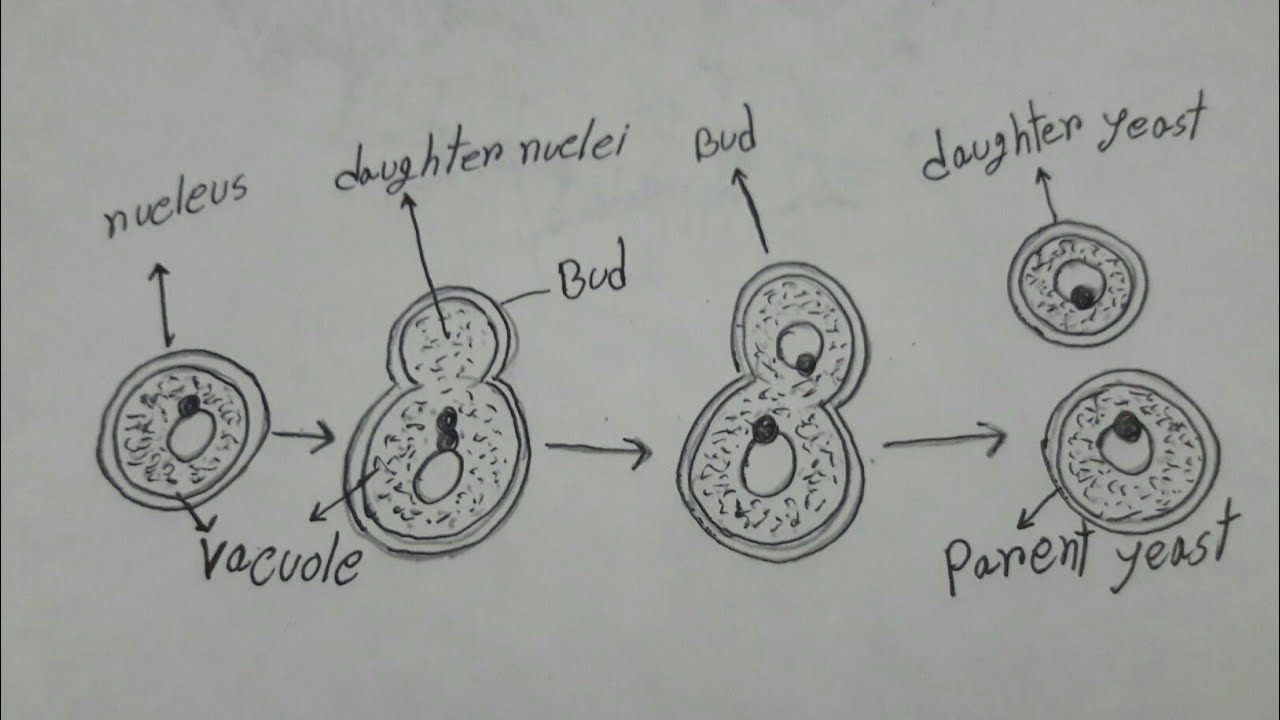 nucleus
daughter nuclei
Bud
Bud
daughter yeast
Vacuole
Parent yeast